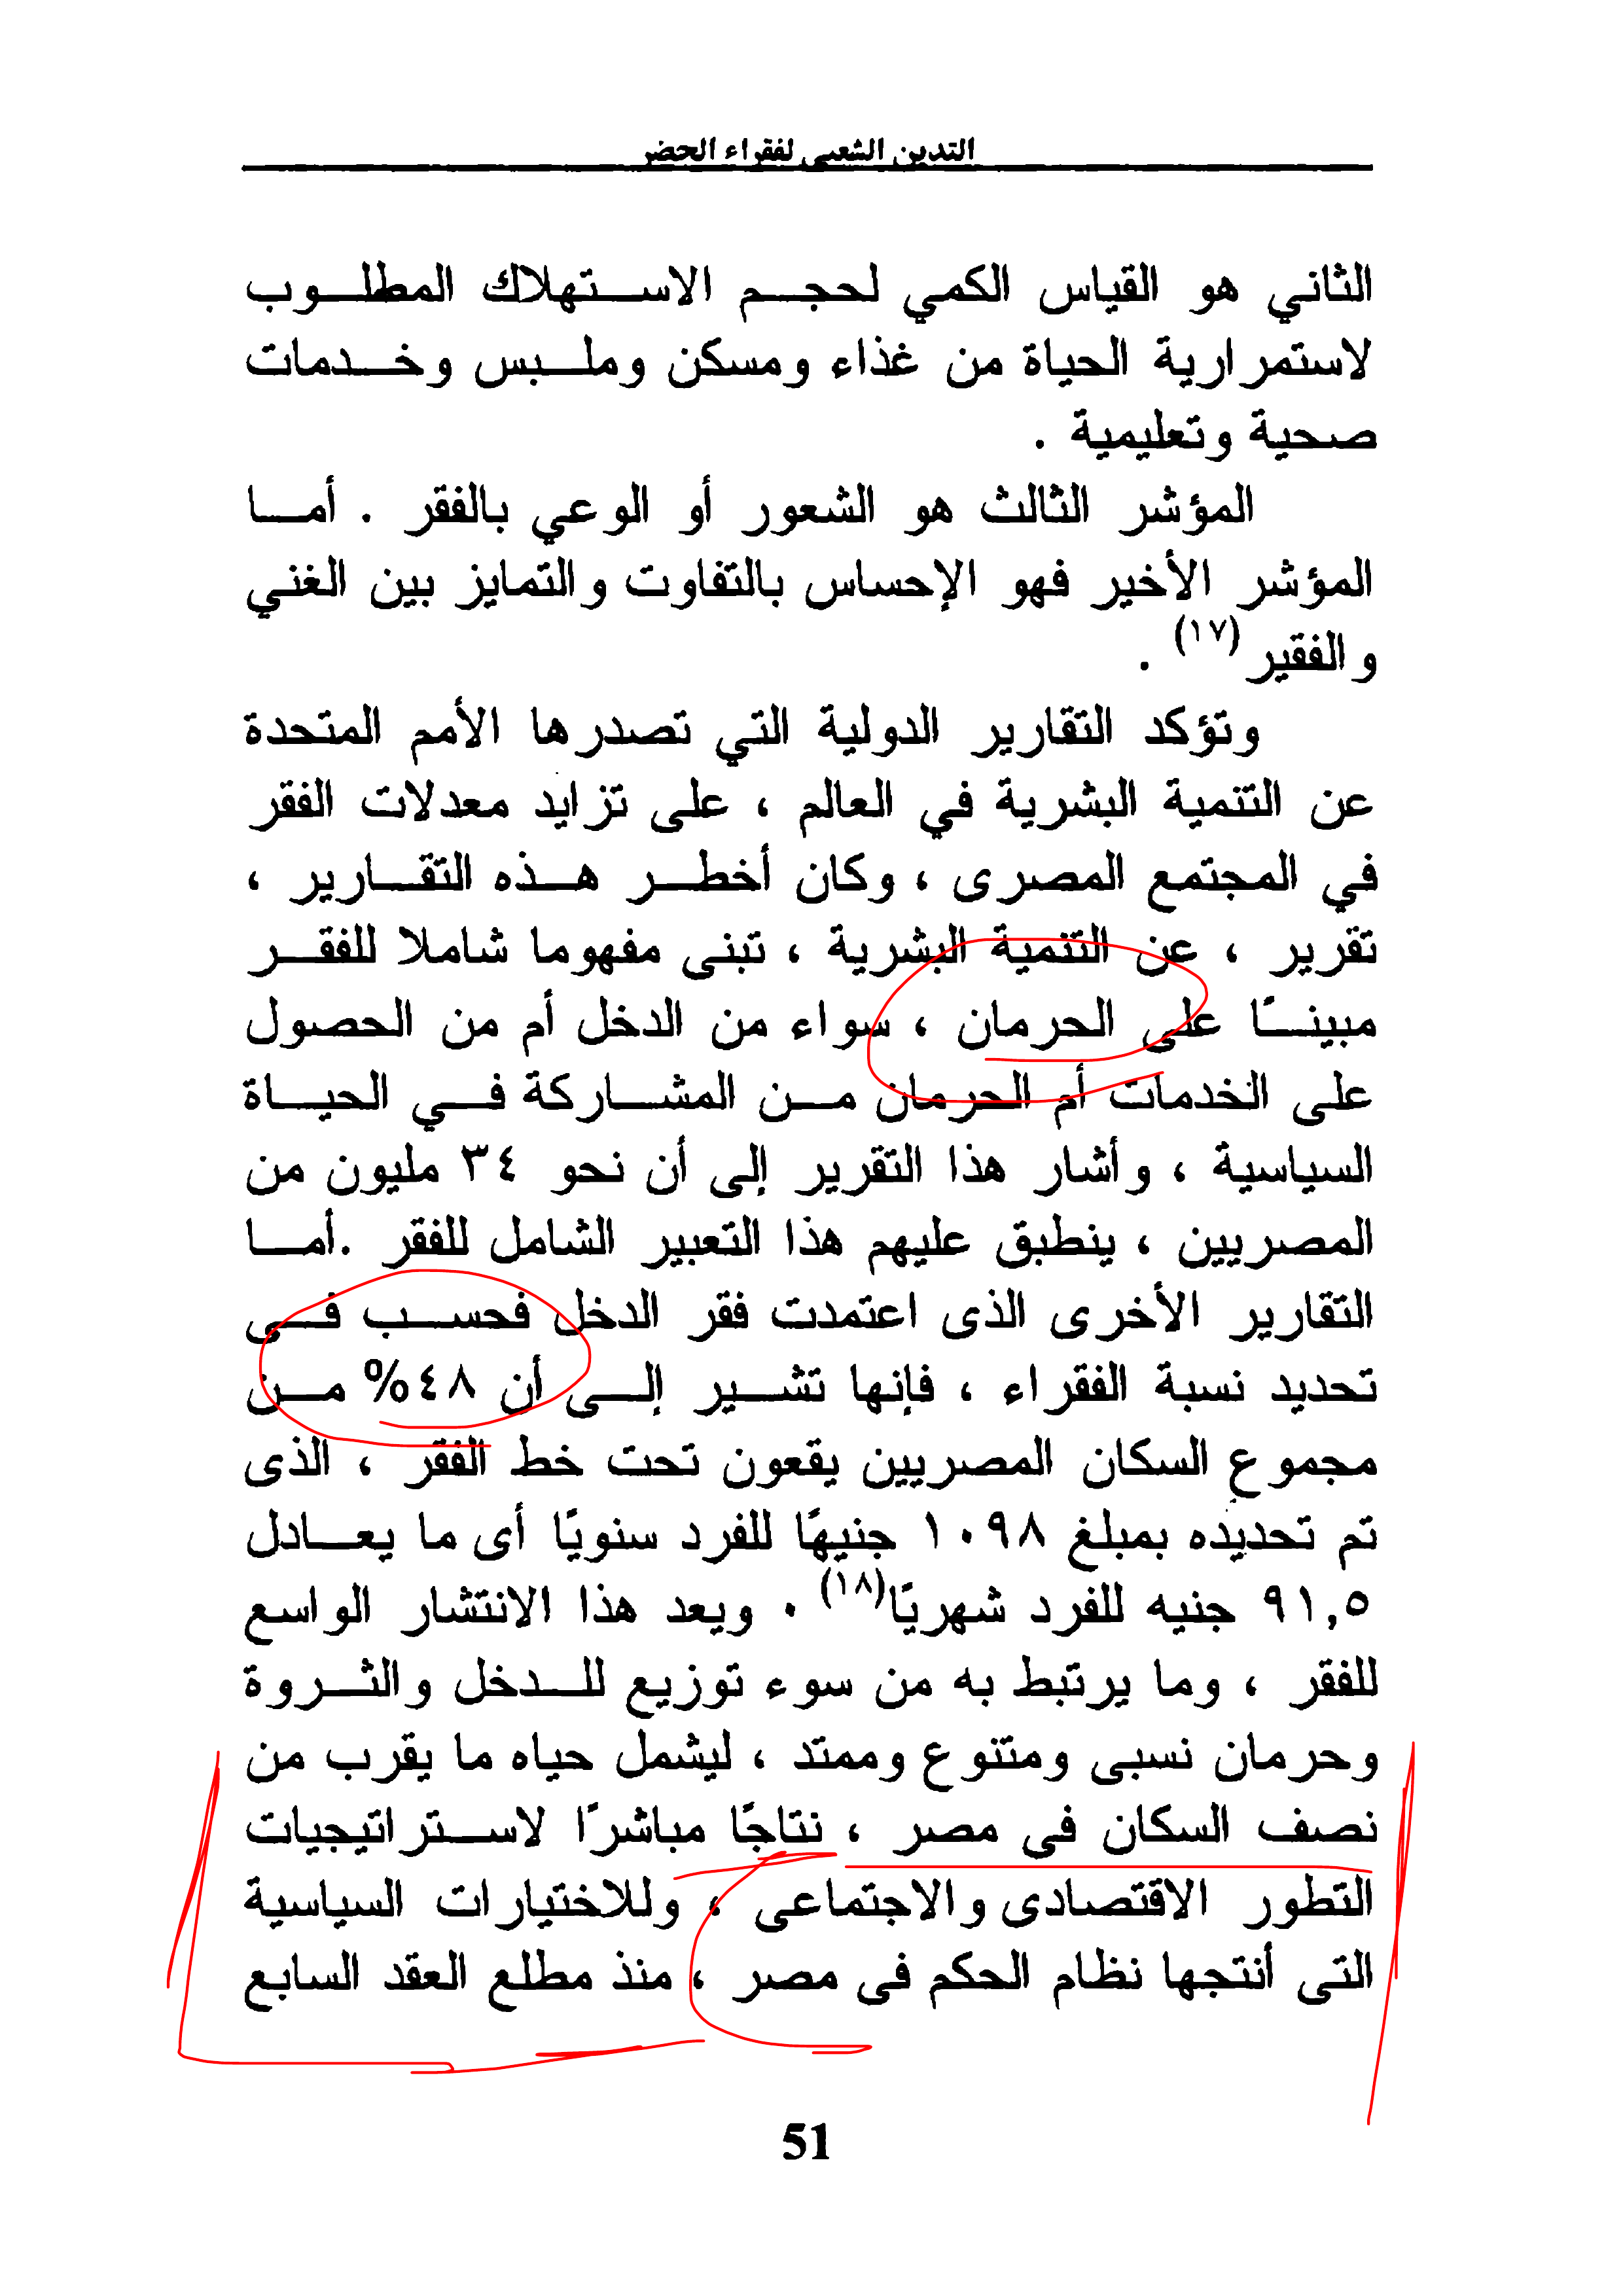 التدين الشعبي لفقراء الحضر
الثاني هو القياس الكمي لحجم الاستهلاك المطلوب
لاستمرارية الحياة من غذاء ومسكن وملبس وخدمات
صحية وتعليمية .
المؤشر الثالث هو الشعور أو الوعي بالفقر . أما
المؤشر الأخير فهو الإحساس بالتفاوت والتمايز بين الغني
والفقير (١٧) .
وتؤكد التقارير الدولية التي تصدرها الأمم المتحدة
عن التنمية البشرية في العالم ، على تزايد معدلات الفقر
في المجتمع المصرى ، وكان أخطر هذه التقارير ،
تقرير ، عن التنمية البشرية ، تبنى مفهوما شاملا للفقر
مبينًا على الحرمان ، سواء من الدخل أم من الحصول
على الخدمات أم الحرمان من المشاركة في الحياة
السياسية ، وأشار هذا التقرير إلى أن نحو ٣٤ مليون من
المصريين ، ينطبق عليهم هذا التعبير الشامل للفقر .أما
التقارير الأخرى الذى اعتمدت فقر الدخل فحسب فى
تحديد نسبة الفقراء ، فإنها تشير إلى أن ٤٨% من
مجموع السكان المصريين يقعون تحت خط الفقر ، الذى
تم تحديده بمبلغ ١٠٩٨ جنيهًا للفرد سنويًا أى ما يعادل
٩١,٥ جنيه للفرد شهريًا(١٨) . ويعد هذا الانتشار الواسع
للفقر ، وما يرتبط به من سوء توزيع للدخل والثروة
وحرمان نسبى ومتنوع وممتد ، ليشمل حياه ما يقرب من
نصف السكان فى مصر ، نتاجًا مباشرًا لاستراتيجيات
التطور الاقتصادى والاجتماعى ، وللاختيارات السياسية
التى أنتجها نظام الحكم فى مصر ، منذ مطلع العقد السابع
51